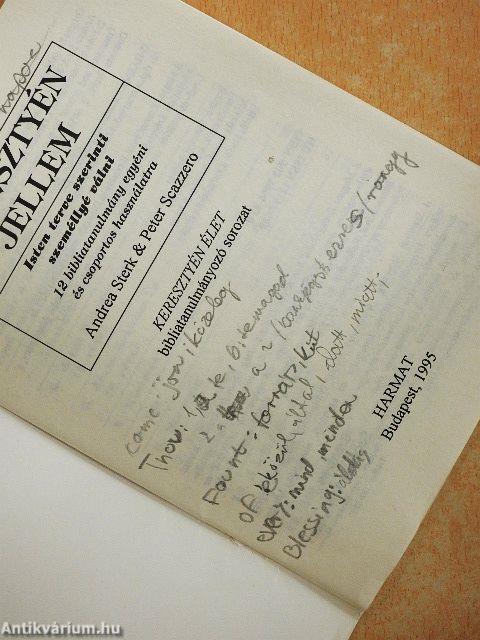 SZTYÉN
JELLEM
Isten terve szerinti
személlyé válni
12 bibliatanulmány egyéni
és csoportos használatra
Andrea Sterk & Peter Scazzero
KERESZTYÉN ÉLET
bibliatanulmányozó sorozat
come: jön, közeleg
Thou: 1 te, temagad
2 a
Fount: forrás, kút
of közül, által, alatt, miatt,
every: mind, minden
Blessing: áldás
HARMAT
Budapest, 1995
Antikvárium.hu